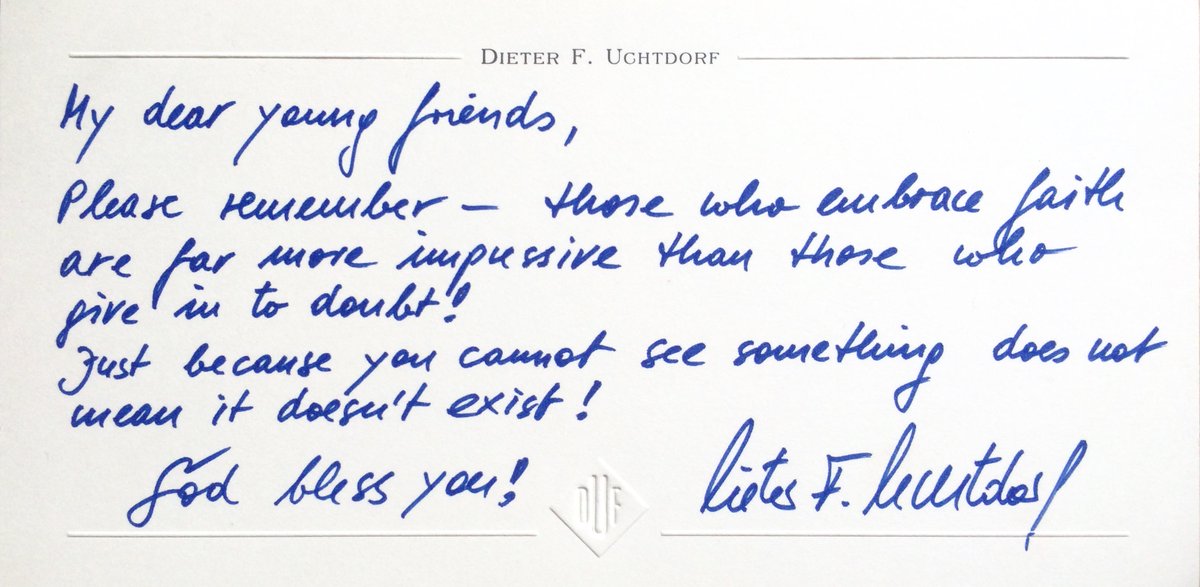 DIETER F. UCHTDORF
My dear young friends,
Please remember – those who embrace faith
are far more impressive than those who
give in to doubt!
Just because you cannot see something does not
mean it doesn't exist!
God bless you!
Dieter F. Uchtdorf
DUF